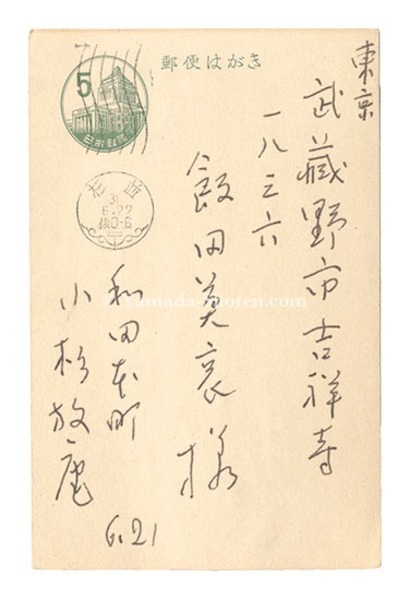 郵便はがき
5
日本郵便
東京
武藏野市吉祥寺
一八三六
飯田美哀様
杉並
31
6.22
後0-6
和田本町
小杉放庵
6.21
© Yamada-shoten.com